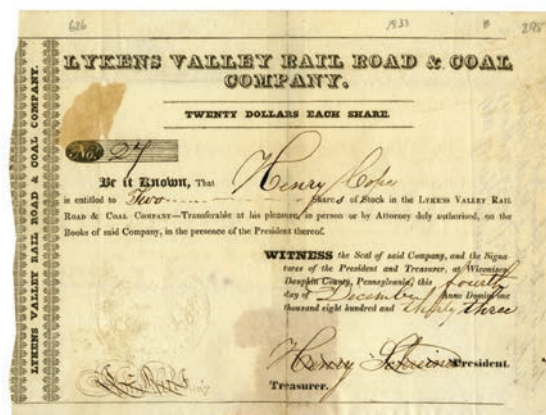 626 1833 B 295
LYKENS VALLEY RAIL ROAD & COAL
COMPANY.
TWENTY DOLLARS EACH SHARE.
No. 27
Be it Known, That Henry Cope
is entitled to Two Shares of Stock in the LYKENS VALLEY RAIL
ROAD & COAL COMPANY—Transferable at his pleasure, in person or by Attorney duly authorised, on the
Books of said Company, in the presence of the President thereof.
WITNESS the Seal of said Company, and the Signa-
tures of the President and Treasurer, at Wiconisco,
Dauphin County, Pennsylvania, this fourth
day of December Anno Domini one
thousand eight hundred and thirty three
Henry President.
Treasurer.
LYKENS VALLEY RAIL ROAD & COAL COMPANY.